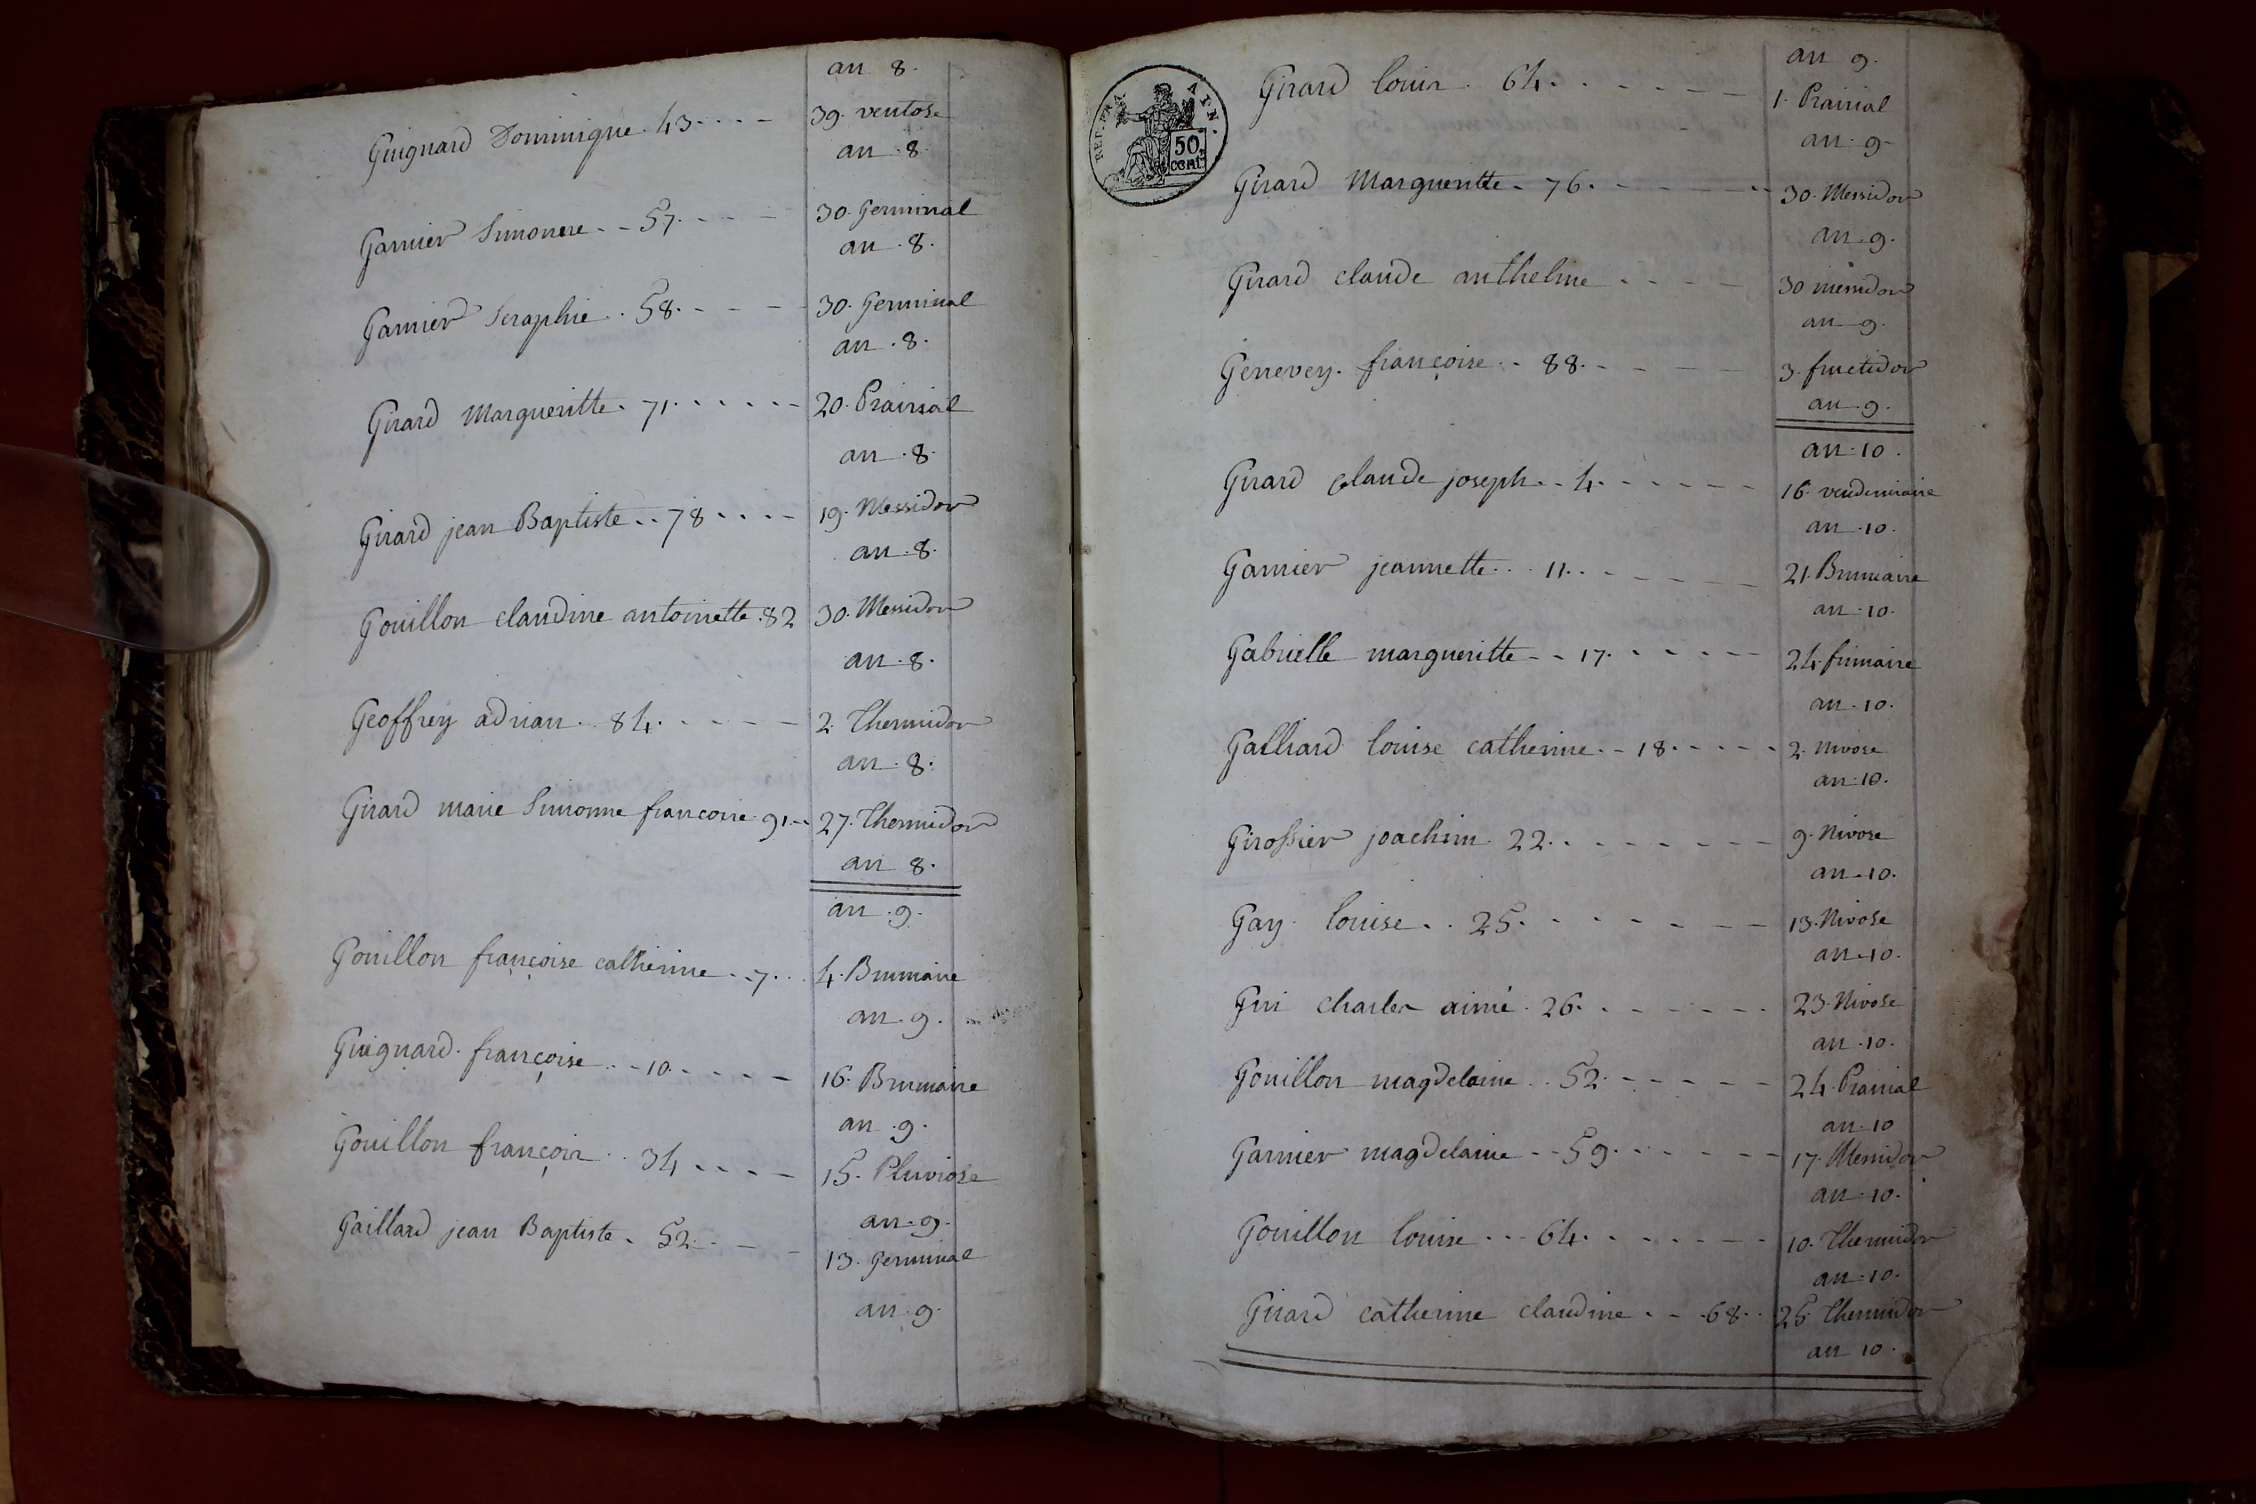 an 8.
Guignard Dominique. 43. . . . - 39. ventose
an . 8.
Garnier Simonne. - - 57. - - - 30. Germinal
an . 8.
Garnier Seraphie. . 58. - - - - 30. Germinal
an . 8.
Girard Margueritte. 71. . . . . - 20. Prairial
an . 8.
Girard jean Baptiste. . 78 . . . - 19. Messidor
an . 8.
Gouillon claudine antoinette . 82 30. Messidor
an . 8.
Geoffrey adrian. . 84. - - - - 2. Thermidor
an . 8.
Girard marie Simonne francoise. 91. - 27. Thermidor
an 8.
an . 9.
Gouillon françoise catherine. - 7. . . 4. Brumaire
an . 9.
Guignard. françoise. . - 10. - - - - 16. Brumaire
an . 9.
Gouillon françois. . 34. . . . - 15. Pluviose
an . 9.
Gaillard jean Baptiste. 52. - - - 13. Germinal
an . 9.
REP. FRA. APN.
50
cent.
an 9.
Girard louis. 64. . - - - - - 1. Prairial
an . 9.
Girard Margueritte. 76. - - - - - 30. Messidor
an . 9.
Girard claude anthelme . - - - - 30 messidor
an 9.
Genevey. françoise. - 88. - - - - 3. fructidor
an . 9.
an . 10.
Girard claude joseph. . 4. - - - - - 16. vendemiaire
an . 10.
Garnier jeannette. . . 11. . - - - - 21. Brumaire
an . 10.
Gabrielle margueritte - - 17. - - - - 24. frimaire
an . 10.
Galliard louise catherine. - 18. . . . . 2. Nivose
an . 10.
Girossier joachim. 22. . - - - - - - 9. Nivose
an . 10.
Gay. louise. . . 25. . - - - - - - 13. Nivose
an . 10.
Gui charles aimé . 26. . - - - - - 23. Nivose
an . 10.
Gouillon magdelaine. . 52. - - - - - 24. Prairial
an . 10
Garnier magdelaine - - 59. - - - - - 17. Messidor
an . 10.
Gouillon louise. . . - 64. . - - - - - 10. Thermidor
an . 10.
Girard catherine claudine . - - . 68. . 25. Thermidor
an 10.